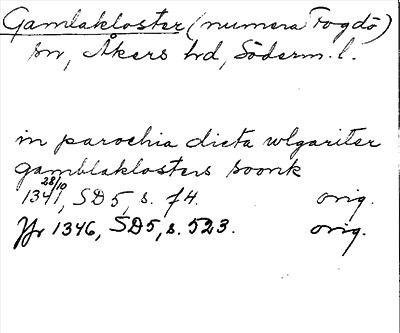 Gamlakloster (numera Fogdö)
sn, Åkers hd, Söderm. l.
in parochia dicta wlgariter
gamblaklosters soonk
28/10
1341, SD 5, s. 74. orig.
Jfr 1346, SD 5, s. 523. orig.